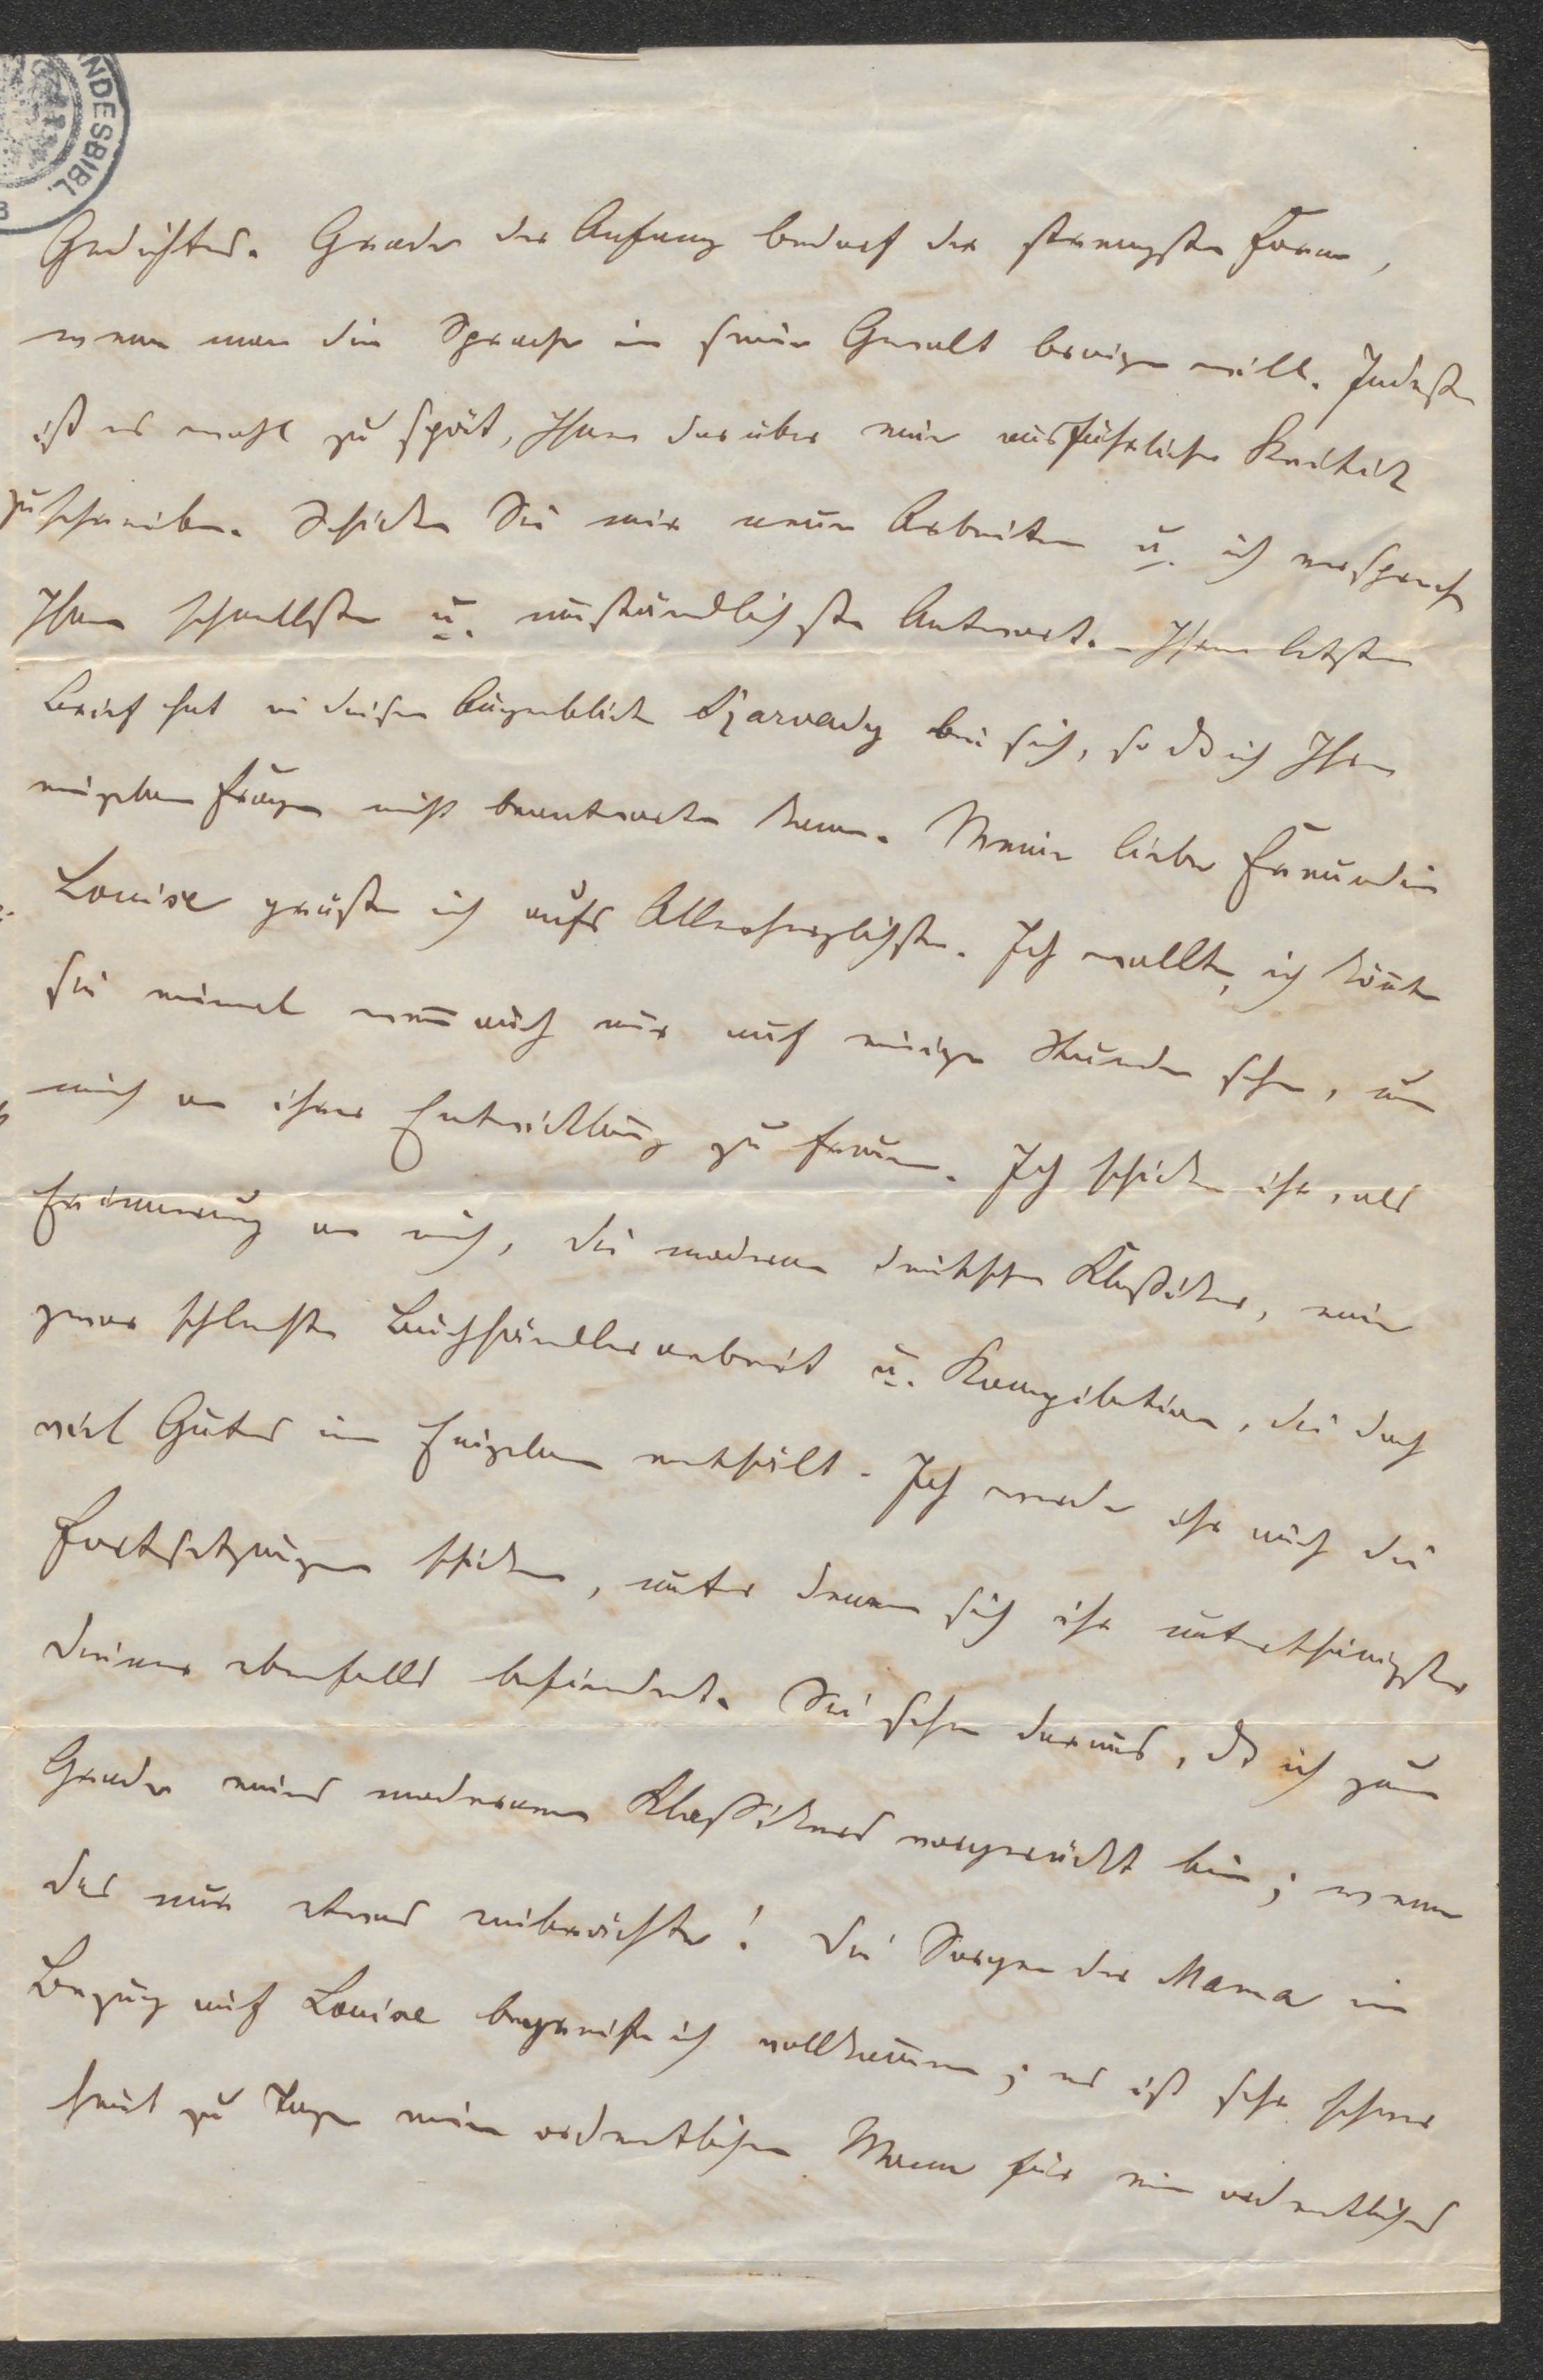 NDESBIBL.
Gedichtes. Grade der Anfang bedarf der strengsten Form,
wenn man die Sprache in seine Gewalt bringen will. Indeßen
ist es wohl zu spät, Ihnen darüber eine ausführliche Kritik
zu schreiben. Schicken Sie mir neue Arbeiten u. ich verspreche
Ihnen schnellste u. umständlichste Antwort. – Ihren letzten
Brief hat in diesem Augenblick Szarvady bei sich, so dß ich Ihre
einzelnen Fragen nicht beantworten kann. Meine liebe Freundin
Louise grüße ich aufs Allerherzlichste. Ich wollte, ich könnte
sie einmal wenn auch nur auf einige Stunden sehen, um
mich an ihrer Entwicklung zu freuen. Ich schicke ihr, als
Erinnerung an mich, die modernen deutschen Klaßiker, eine
zwar schlechte Buchhändlerarbeit u. Kompilation, die doch
viel Gutes im Einzelnen enthält. Ich werde ihr auch die
Fortsetzungen schicken, unter denen sich ihr unterthänigster
Diener ebenfalls befindet. Sie sehen daraus, dß ich zum
Grade eines modernen Klaßikers vorgerückt bin; wenn
das nur etwas einbrächte! Die Sorgen der Mama in
Bezug auf Louise begreife ich vollkommen; es ist sehr schwer
heut zu Tage einen ordentlichen Mann für ein ordentliches